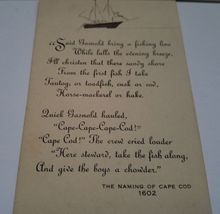 "Said Gosnold bring a fishing line
While lulls the evening breeze,
I'll christen that there sandy shore
From the first fish I take
Tautog or toadfish, cusk or cod,
Horse-mackerel or hake.
Quick Gosnold hauled,
"Cape-Cape-Cape-Cod!"
"Cape Cod!" The crew cried louder
"Here steward, take the fish along,
And give the boys a chowder."
THE NAMING OF CAPE COD
1602